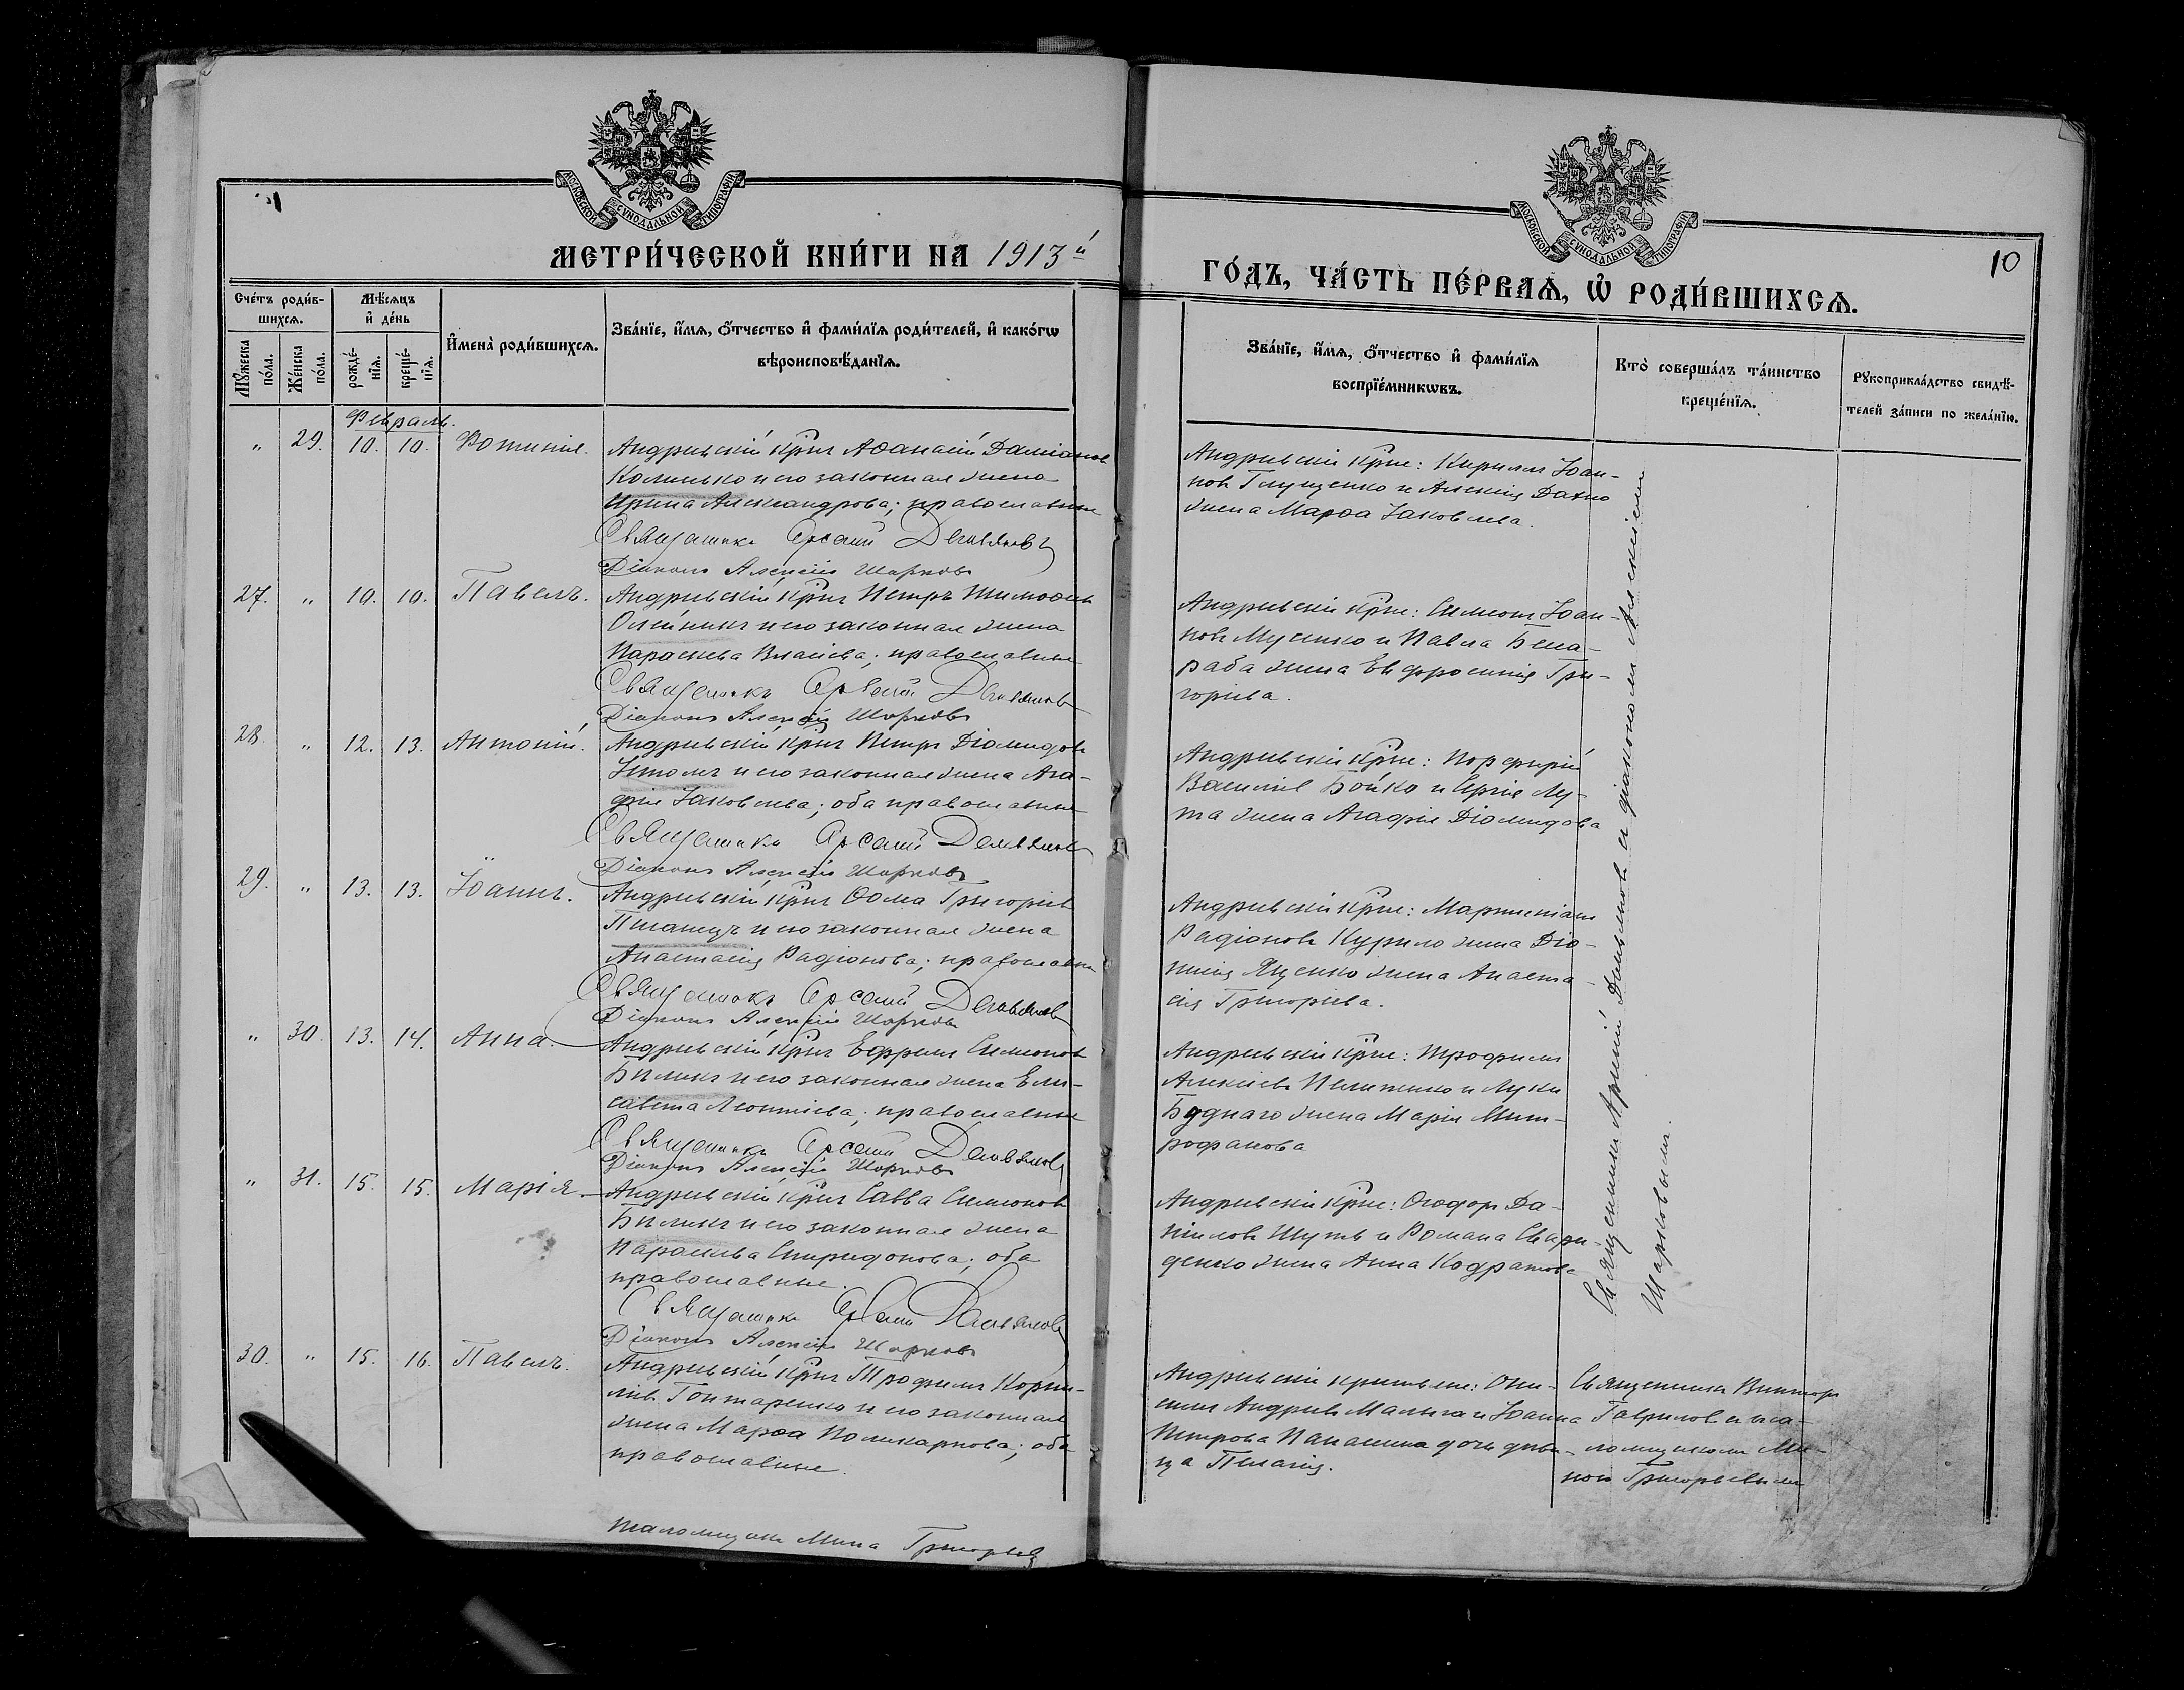 МОСКОВСКОЙ СУНОДАЛЬНОЙ ТИПОГРАФІИ
МЕТРИ́ЧЕСКОЙ КНИ́ГИ НА 1913й
Сче́тъ роди́в-
шихсѧ.
Мѣ́сѧцъ
и҆ де́нь
Мꙋ́жеска
по́ла.
Же́нска
по́ла.
рожде́-
нїѧ.
креще́-
нїѧ.
И҆мена̀ роди́вшихсѧ.
Зва́нїе, и҆́мѧ, ѻ҆́тчество и҆ фами́лїѧ роди́телей, и҆ како́гѡ
вѣроисповѣ́данїѧ.
Февраль.
„ 29. 10. 10. Фотинія. Андреевскій крнъ Аѳанасій Даміановъ
Колинько и его законная жена
Ирина Александрова; православные
Священникъ Арсеній Демьяновъ
Діаконъ Алексій Шарковъ
27. „ 10. 10. Павелъ. Андреевскій крнъ Петръ Тимоѳеевъ
Олейникъ и его законная жена
Параскева Власіева; православные
Священникъ Арсеній Демьяновъ
Діаконъ Алексій Шарковъ
28. „ 12. 13. Антоній. Андреевскій крнъ Петръ Діомидовъ
и его законная жена Ага-
фія Іаковлева; оба православные
Священникъ Арсеній Демьяновъ
Діаконъ Алексій Шарковъ
29. „ 13. 13. Іоаннъ. Андреевскій крнъ Ѳома Григоріевъ
и его законная жена
Анастасія Радіонова; православные
Священникъ Арсеній Демьяновъ
Діаконъ Алексій Шарковъ
„ 30. 13. 14. Анна. Андреевскій крнъ Ефремъ Симеоновъ
Билыкъ и его законная жена Ели-
савета Леонтіева; православные
Священникъ Арсеній Демьяновъ
Діаконъ Алексій Шарковъ
„ 31. 15. 15. Марія. Андреевскій крнъ Савва Симеоновъ
Билыкъ и его законная жена
Параскева Спиридонова; оба
православные.
Священникъ Арсеній Демьяновъ
Діаконъ Алексій Шарковъ
30. „ 15. 16. Павелъ. Андреевскій крнъ Трофимъ Корни-
ліев. Гонтаренко и его законная
жена Марѳа Поликарпова; оба
православные.
Псаломщикъ Мина Григорьевъ
МОСКОВСКОЙ СУНОДАЛЬНОЙ ТИПОГРАФІИ
10
ГО́ДЪ, ЧА́СТЬ ПЕ́РВАѦ, Ѽ РОДИ́ВШИХСѦ.
Зва́нїе, и҆́мѧ, ѻ҆́тчество и҆ фами́лїѧ
воспрїе́мникѡвъ.
Кто̀ соверша́лъ та́инство
креще́нїѧ.
Рꙋкоприкла́дство свидѣ́-
телей за́писи по жела́нїю.
Андреевскіе крне: Кириллъ Іоан-
новъ Глущенко и Алексія
жена Марѳа Іаковлева.
Андреевскіе крне: Симеонъ Іоан-
новъ Мусенко и Павла Беса-
раба жена Евфросинія Гри-
горіева.
Андреевскіе крне: Порфирій
Василіев Бойко и Сергія Лу-
та жена Агафія Діомидова
Андреевскіе крне:
Радіоновъ Курило жена Діо-
нисія Яценко жена Анаста-
сія Григоріева.
Андреевскіе крне: Трофимъ
Алексіевъ и Луки
Буднаго жена Марія Мит-
рофанова
Андреевскіе крне: Ѳеодоръ Да-
ніиловъ Шуть и Романа Свири-
денко жена Анна Кодратова
Андреевскіе крестьяне: Они-
симъ Андреевъ Малыга и Іоанна
Петрова Панасенка дочь деви-
ца Пелагія.
Священникомъ Арсеніем Демьяновымъ и діакономъ Алексіемъ
Шарковымъ.
Священникъ Викторъ
Гавриловъ и пса-
ломщикомъ Ми-
ною Григорьевымъ